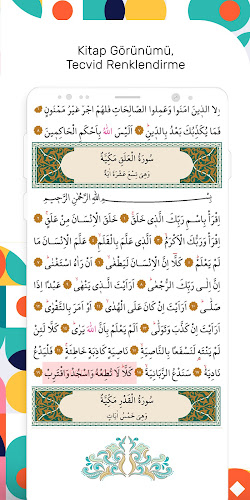 Kitap Görünümü,
Tecvid Renklendirme
اِلَّا الَّذ۪ينَ اٰمَنُوا وَعَمِلُوا الصَّالِحَاتِ فَلَهُمْ اَجْرٌ غَيْرُ مَمْنُونٍ
فَمَا يُكَذِّبُكَ بَعْدُ بِالدّ۪ينِ اَلَيْسَ اللّٰهُ بِاَحْكَمِ الْحَاكِم۪ينَ
سُورَةُ الْعَلَقِ مَكِّيَّةٌ
وَهِيَ تِسْعَ عَشْرَةَ اٰيَةً
بِسْمِ اللّٰهِ الرَّحْمٰنِ الرَّح۪يمِ
اِقْرَأْ بِاسْمِ رَبِّكَ الَّذ۪ي خَلَقَ خَلَقَ الْاِنْسَانَ مِنْ عَلَقٍ
اِقْرَأْ وَرَبُّكَ الْاَكْرَمُ اَلَّذ۪ي عَلَّمَ بِالْقَلَمِ عَلَّمَ الْاِنْسَانَ مَا
لَمْ يَعْلَمْ كَلَّا اِنَّ الْاِنْسَانَ لَيَطْغٰى اَنْ رَاٰهُ اسْتَغْنٰى
اِنَّ اِلٰى رَبِّكَ الرُّجْعٰى اَرَاَيْتَ الَّذ۪ي يَنْهٰى عَبْدًا اِذَا
صَلّٰى اَرَاَيْتَ اِنْ كَانَ عَلَى الْهُدٰى اَوْ اَمَرَ بِالتَّقْوٰى
اَرَاَيْتَ اِنْ كَذَّبَ وَتَوَلّٰى اَلَمْ يَعْلَمْ بِاَنَّ اللّٰهَ يَرٰى كَلَّا لَئِنْ
لَمْ يَنْتَهِ لَنَسْفَعًا بِالنَّاصِيَةِ نَاصِيَةٍ كَاذِبَةٍ خَاطِئَةٍ فَلْيَدْعُ
نَادِيَهُ سَنَدْعُ الزَّبَانِيَةَ كَلَّا لَا تُطِعْهُ وَاسْجُدْ وَاقْتَرِبْ
سُورَةُ الْقَدْرِ مَكِّيَّةٌ
وَهِيَ خَمْسُ اٰيَاتٍ